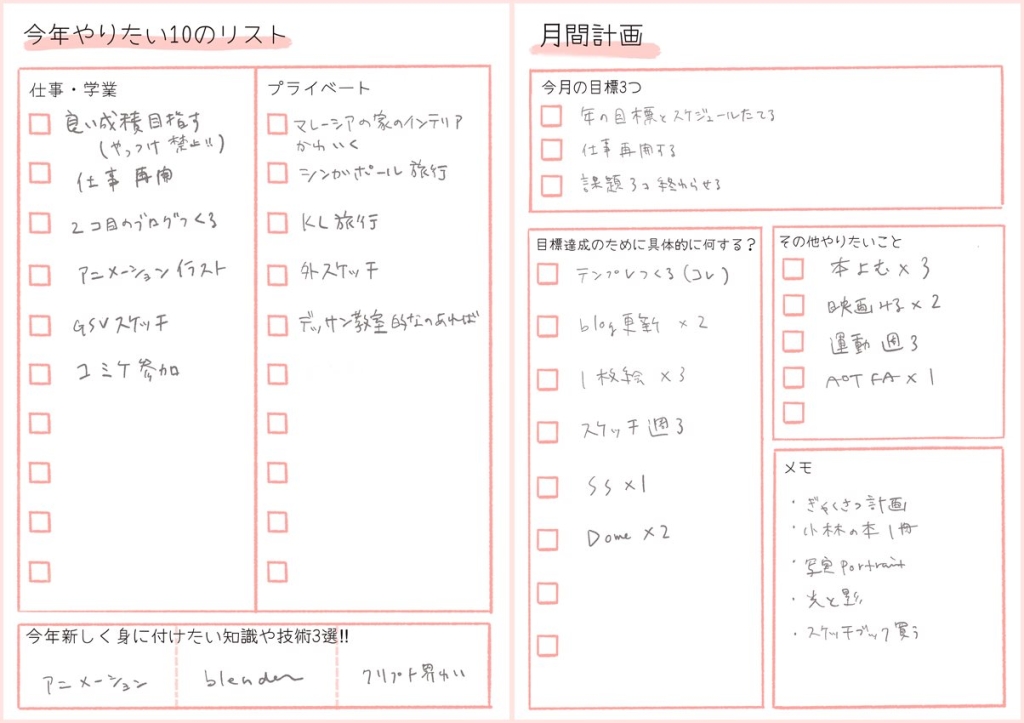 今年やりたい10のリスト
仕事・学業
良い成積目指す
(やっつけ 禁止!!)
仕事 再開
2コ目のブログつくる
アニメーションイラスト
GSVスケッチ
コミケ参加
プライベート
マレーシアの家のインテリア
かわいく
シンガポール旅行
KL旅行
外スケッチ
デッサン教室的なのあれば
今年新しく身に付けたい知識や技術3選!!
アニメーション
blender
クリプト界わい
月間計画
今月の目標3つ
年の目標とスケジュールたてる
仕事再開する
課題3コ終わらせる
目標達成のために具体的に何する？
テンプレつくる(コレ)
blog更新 ×2
1枚絵 ×3
スケッチ週3
SS×1
Dome×2
その他やりたいこと
本よむ×3
映画みる×2
運動 週3
AOT FA×1
メモ
・ 計画
・小林の本1冊
・写実portrait
・光と影
・スケッチブック買う